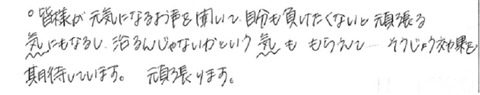 ○皆様が元気になるよう声を聞いて自分も負けたくないと頑張る
気にもなるし、治るんじゃないかという気ももらえて…そうじょう効果を
期待しています。 頑張ります。